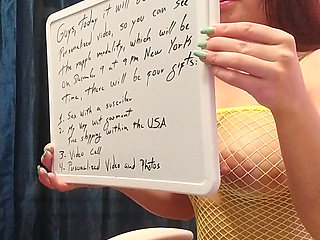 Guys, Today it will be
Personalized video, so you can see
the raffle modality, which will be
on December 9 at 9 pm New York
time, there will be four gifts:
1. Sex with a suscriber
2. My Very wet garment
Free shipping within the USA
3. Video Call
4. Personalized Video and Photos